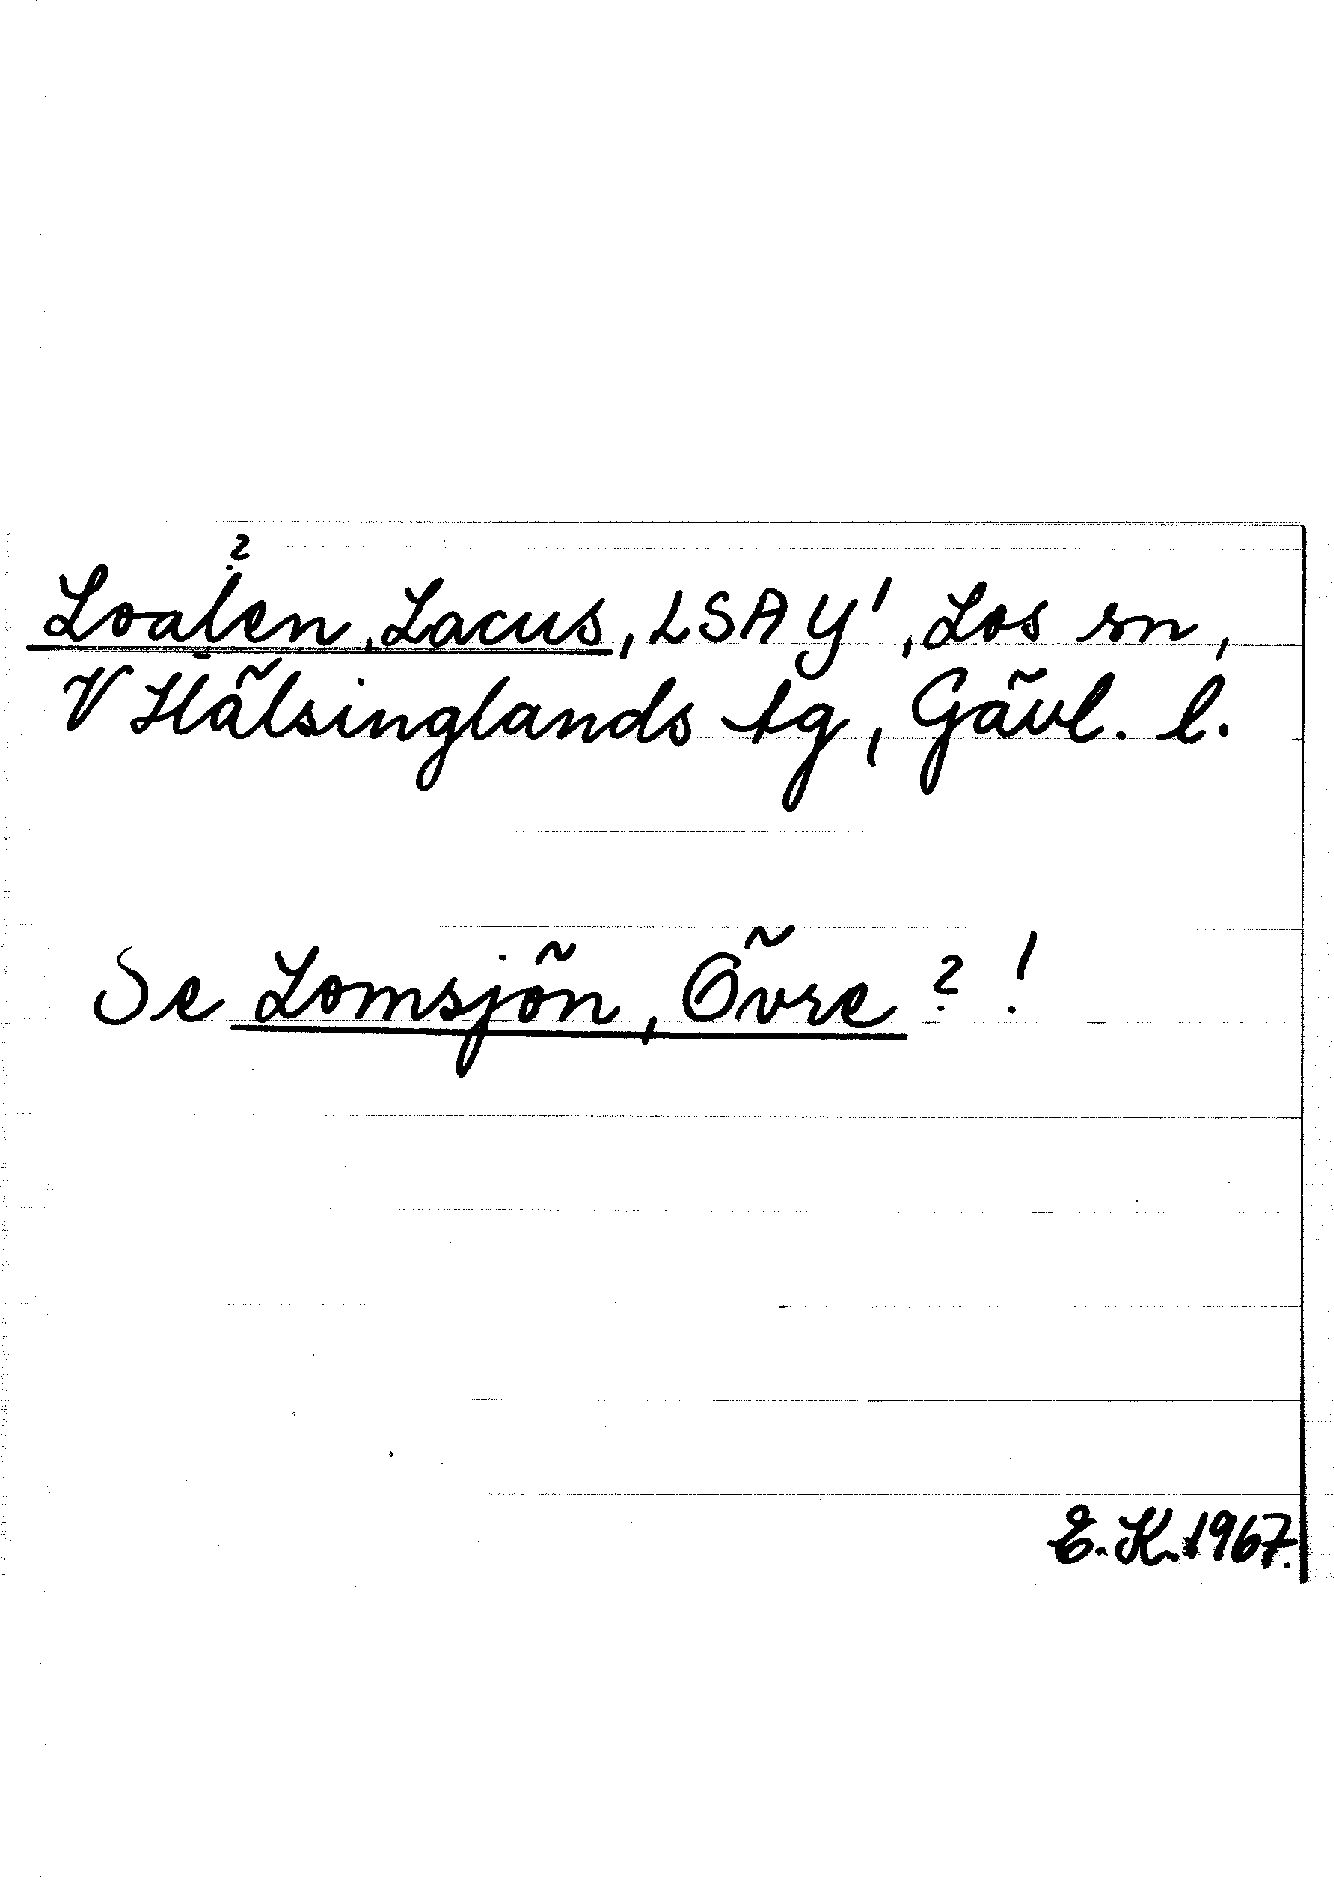 ?
Loalen, Lacus, LSA Y', Los sn,
V Hälsinglands tg, Gävl. l.
Se Lomsjön, Övre ? !
E. K. 1967.